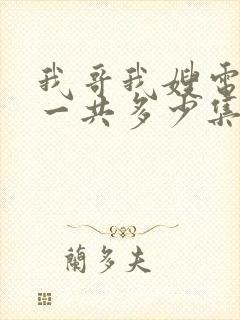 我哥我嫂電
一共多少集
蘭多夫